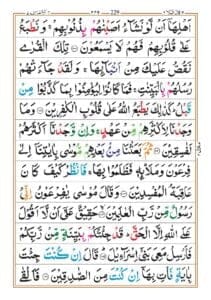 229
اَهْلِهَاۤ اَنْ لَّوْ نَشَآءُ اَصَبْنٰهُمْ بِذُنُوْبِهِمْ ۚ وَنَطْبَعُ
عَلٰى قُلُوْبِهِمْ فَهُمْ لَا يَسْمَعُوْنَ ۝ تِلْكَ الْقُرٰى
نَقُصُّ عَلَيْكَ مِنْ اَنْۢبَآئِهَا ۚ وَلَقَدْ جَآءَتْهُمْ
رُسُلُهُمْ بِالْبَيِّنٰتِ ۚ فَمَا كَانُوْا لِيُؤْمِنُوْا بِمَا كَذَّبُوْا مِنْ
قَبْلُ ؕ كَذٰلِكَ يَطْبَعُ اللّٰهُ عَلٰى قُلُوْبِ الْكٰفِرِيْنَ ۝ وَمَا
وَجَدْنَا لِاَكْثَرِهِمْ مِّنْ عَهْدٍ ۚ وَاِنْ وَّجَدْنَاۤ اَكْثَرَهُمْ
لَفٰسِقِيْنَ ۝ ثُمَّ بَعَثْنَا مِنْۢ بَعْدِهِمْ مُّوْسٰى بِاٰيٰتِنَاۤ اِلٰى
فِرْعَوْنَ وَمَلَا۟ئِهٖ فَظَلَمُوْا بِهَا ۚ فَانْظُرْ كَيْفَ كَانَ
عَاقِبَةُ الْمُفْسِدِيْنَ ۝ وَقَالَ مُوْسٰى يٰفِرْعَوْنُ اِنِّيْ
رَسُوْلٌ مِّنْ رَّبِّ الْعٰلَمِيْنَ ۝ حَقِيْقٌ عَلٰۤى اَنْ لَّاۤ اَقُوْلَ
عَلَى اللّٰهِ اِلَّا الْحَقَّ ؕ قَدْ جِئْتُكُمْ بِبَيِّنَةٍ مِّنْ رَّبِّكُمْ
فَاَرْسِلْ مَعِيَ بَنِيْۤ اِسْرَآءِيْلَ ۝ قَالَ اِنْ كُنْتَ جِئْتَ
بِاٰيَةٍ فَاْتِ بِهَاۤ اِنْ كُنْتَ مِنَ الصّٰدِقِيْنَ ۝ فَاَلْقٰى